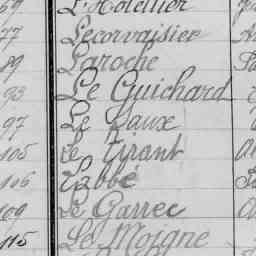 69 L'Hotellier
77 Lecorvaisier
89 Laroche
93 Le Guichard
97 Le Faux
105 Le Tirant
106 Labbé
109 Le Garrec
115 Le Moigne